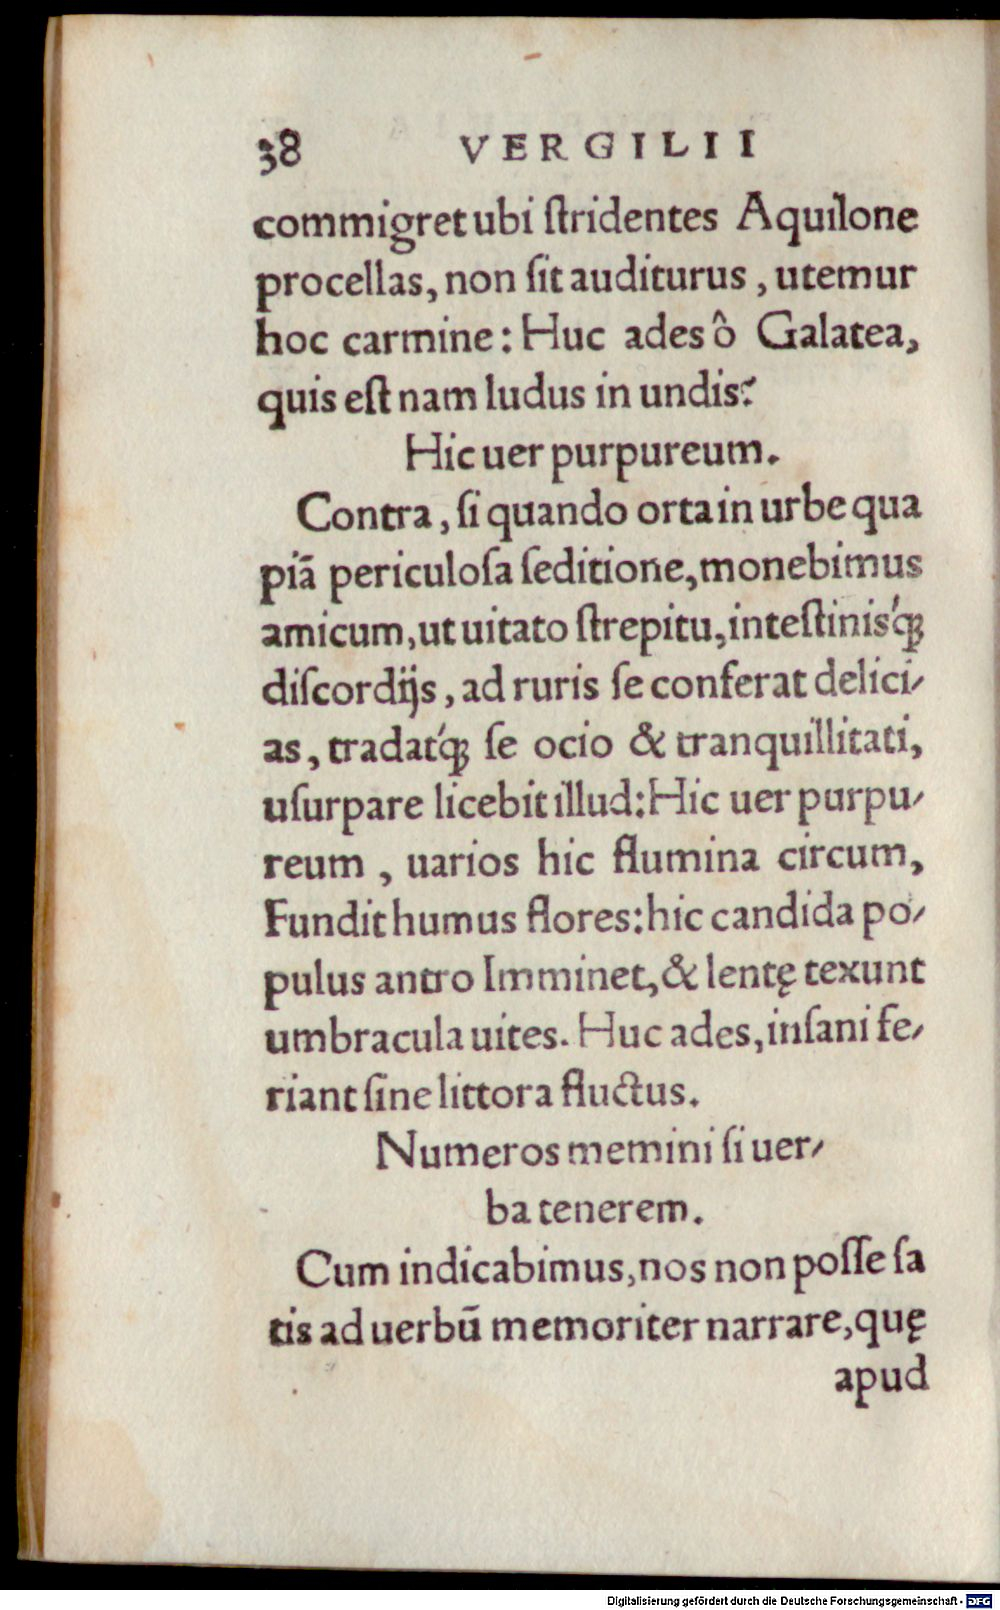 38 VERGILII
commigret ubi ſtridentes Aquilone
procellas, non ſit auditurus, utemur
hoc carmine: Huc ades ô Galatea,
quis eſt nam ludus in undis?
Hic uer purpureum.
Contra, ſi quando orta in urbe qua
piā periculoſa ſeditione, monebimus
amicum, ut uitato ſtrepitu, inteſtinis´q;
diſcordijs, ad ruris ſe conferat delici/
as, tradat´q; ſe ocio & tranquillitati,
uſurpare licebit illud: Hic uer purpu/
reum, uarios hic flumina circum,
Fundit humus flores: hic candida po/
pulus antro Imminet, & lentę texunt
umbracula uites. Huc ades, inſani fe/
riant ſine littora fluctus.
Numeros memini ſi uer/
ba tenerem.
Cum indicabimus, nos non poſſe ſa
tis ad uerbū memoriter narrare, quę
apud
Digitalisierung gefördert durch die Deutsche Forschungsgemeinschaft - DFG